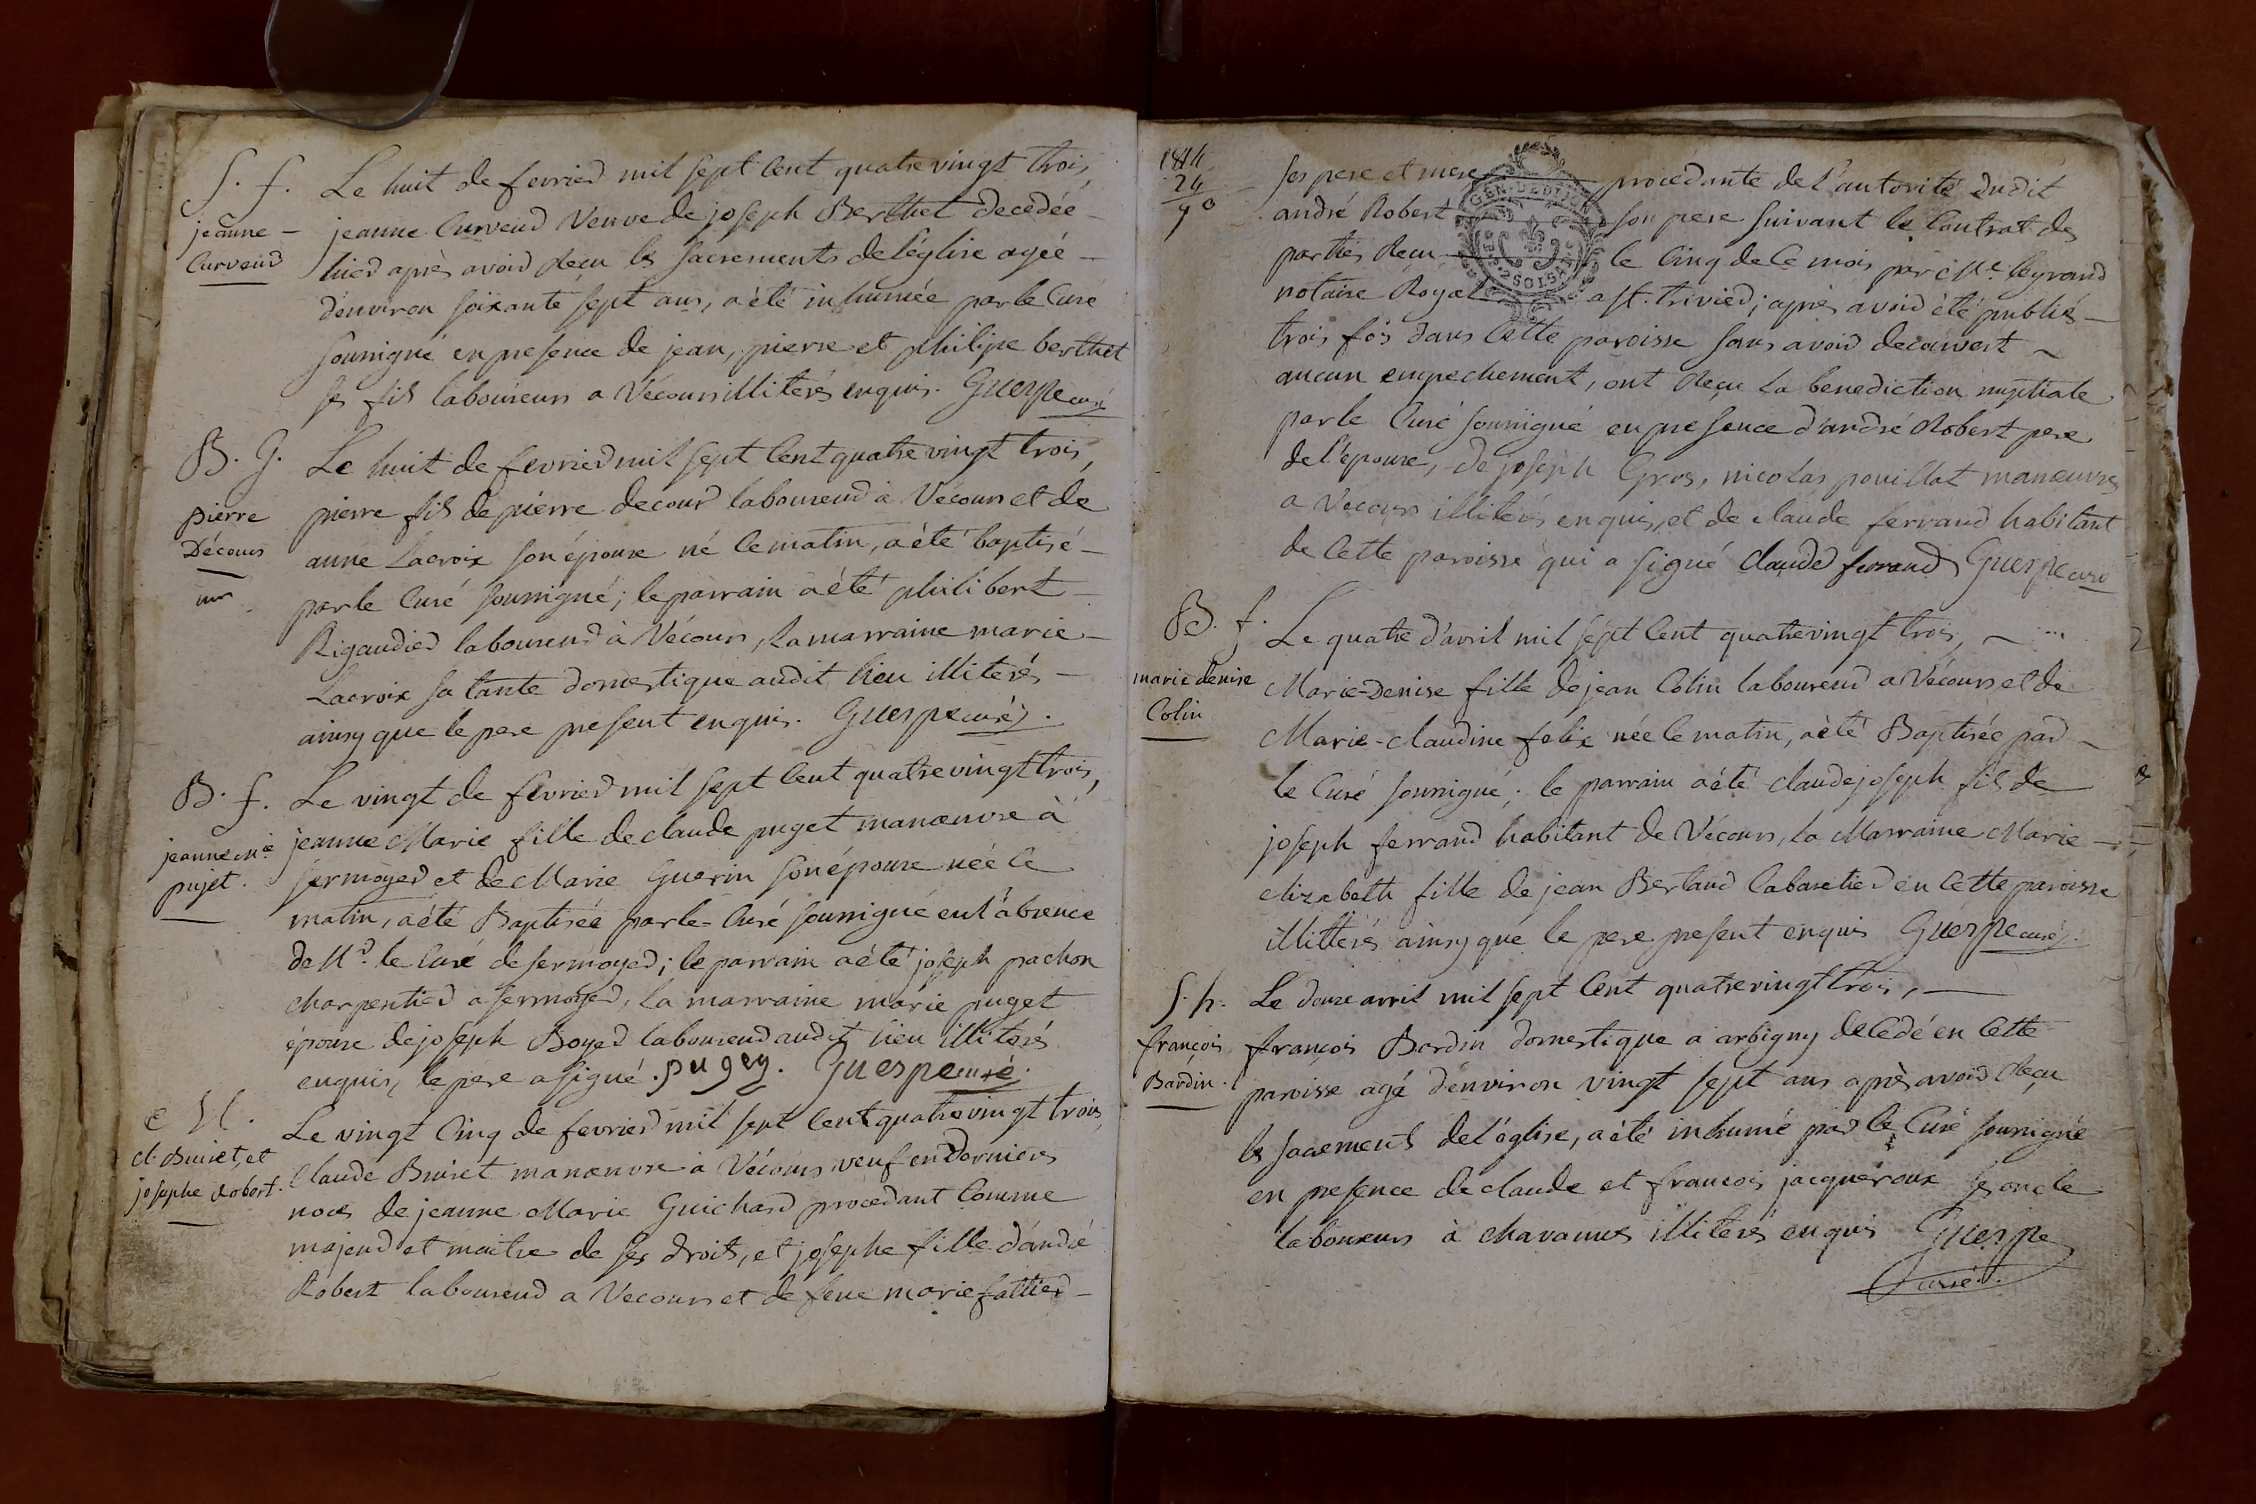 S. f.
jeanne
Curveur
Le huit de fevrier mil sept Cent quatre vingt trois,
jeanne Curveur Veuve de joseph Berthet decedéé
hier après avoir Reçu les sacrements de l'église agéé
d'environ soixante sept ans, a été inhumée par le Curé
soussigné en presence de jean, pierre et philipe berthet
ses fils laboureurs a Vécours illiterés enquis. Guerpe curé
B. G.
pierre
Décours
Le huit de fevrier mil sept Cent quatre vingt trois,
pierre fils de pierre decour laboureur à Vécours et de
anne Lacroix son épouse né ce matin, a été baptisé
par le Curé soussigné; le parrain a été philibert
Rigaudier laboureur à Vécours, la marraine marie
Lacroix sa tante domestique audit lieu illiterés
ainsy que le pere present enquis. Guerpe curé.
B. f.
jeanne Mie
pujet.
Le vingt de fevrier mil sept Cent quatre vingt trois,
jeanne Marie fille de claude puget manœuvre à
sermoyer et de Marie Guerin son épouse néé ce
matin, a été Baptisée par le Curé soussigné en l'absence
de Mr. le Curé de sermoyer; le parrain a été joseph pachon
charpentier a sermoyer, la marraine marie puget
épouse de joseph Boyer laboureur audit lieu illiterés
enquis, le pere a signé. pugey. Guerpe curé.
M.
cl. Buiret, et
josephe Robert.
Le vingt Cinq de fevrier mil sept Cent quatre vingt trois,
Claude Buiret manœuvre à Vécours veuf en dernieres
noces de jeanne Marie Guichard procedant Comme
majeur et maitre de ses droits, et josephe fille d'andré
Robert laboureur a Vecours et de feue marie fattier
24
ses pere et mere procedante de l'autorité dudit
andré Robert son pere suivant le Contrat des
parties Reçu le Cinq de Ce mois par Me legrand
notaire Royal a st. trivier; après avoir été publiés
GEN. DE DIJON
2 SOLS
trois fois dans Cette paroisse sans avoir decouvert
aucun empechement, ont Reçu la benediction nuptiale
par le Curé soussigné en presence d'andré Robert pere
de l'epouse, de joseph Gros, nicolas pouillat manœuvres
a Vecours illiterés enquis, et de claude ferrand habitant
de Cette paroisse qui a signé Claude ferrand Guerpe curé
B. f.
marie denise
Colin
Le quatre d'avril mil sept Cent quatre vingt trois,
Marie-Denise fille de jean Colin laboureur a Vécours et de
Marie-claudine felix née ce matin, a été Baptisée par
le Curé soussigné; le parrain a été claude joseph fils de
joseph ferrand habitant de Vécours, la Marraine Marie
elizabeth fille de jean Berland Cabaretier en Cette paroisse
illitterés ainsy que le pere present enquis Guerpe curé.
S. h.
françois
Bardin.
Le douze avril mil sept Cent quatre vingt trois,
françois Bardin domestique a arbigny decedé en Cette
paroisse agé d'environ vingt sept ans après avoir Reçu
les sacements de l'église, a été inhumé par le Curé soussigné
en presence de claude et francois jacqueroux ses oncle
laboureurs à chavannes illiterés enquis Guerpe
Curé.